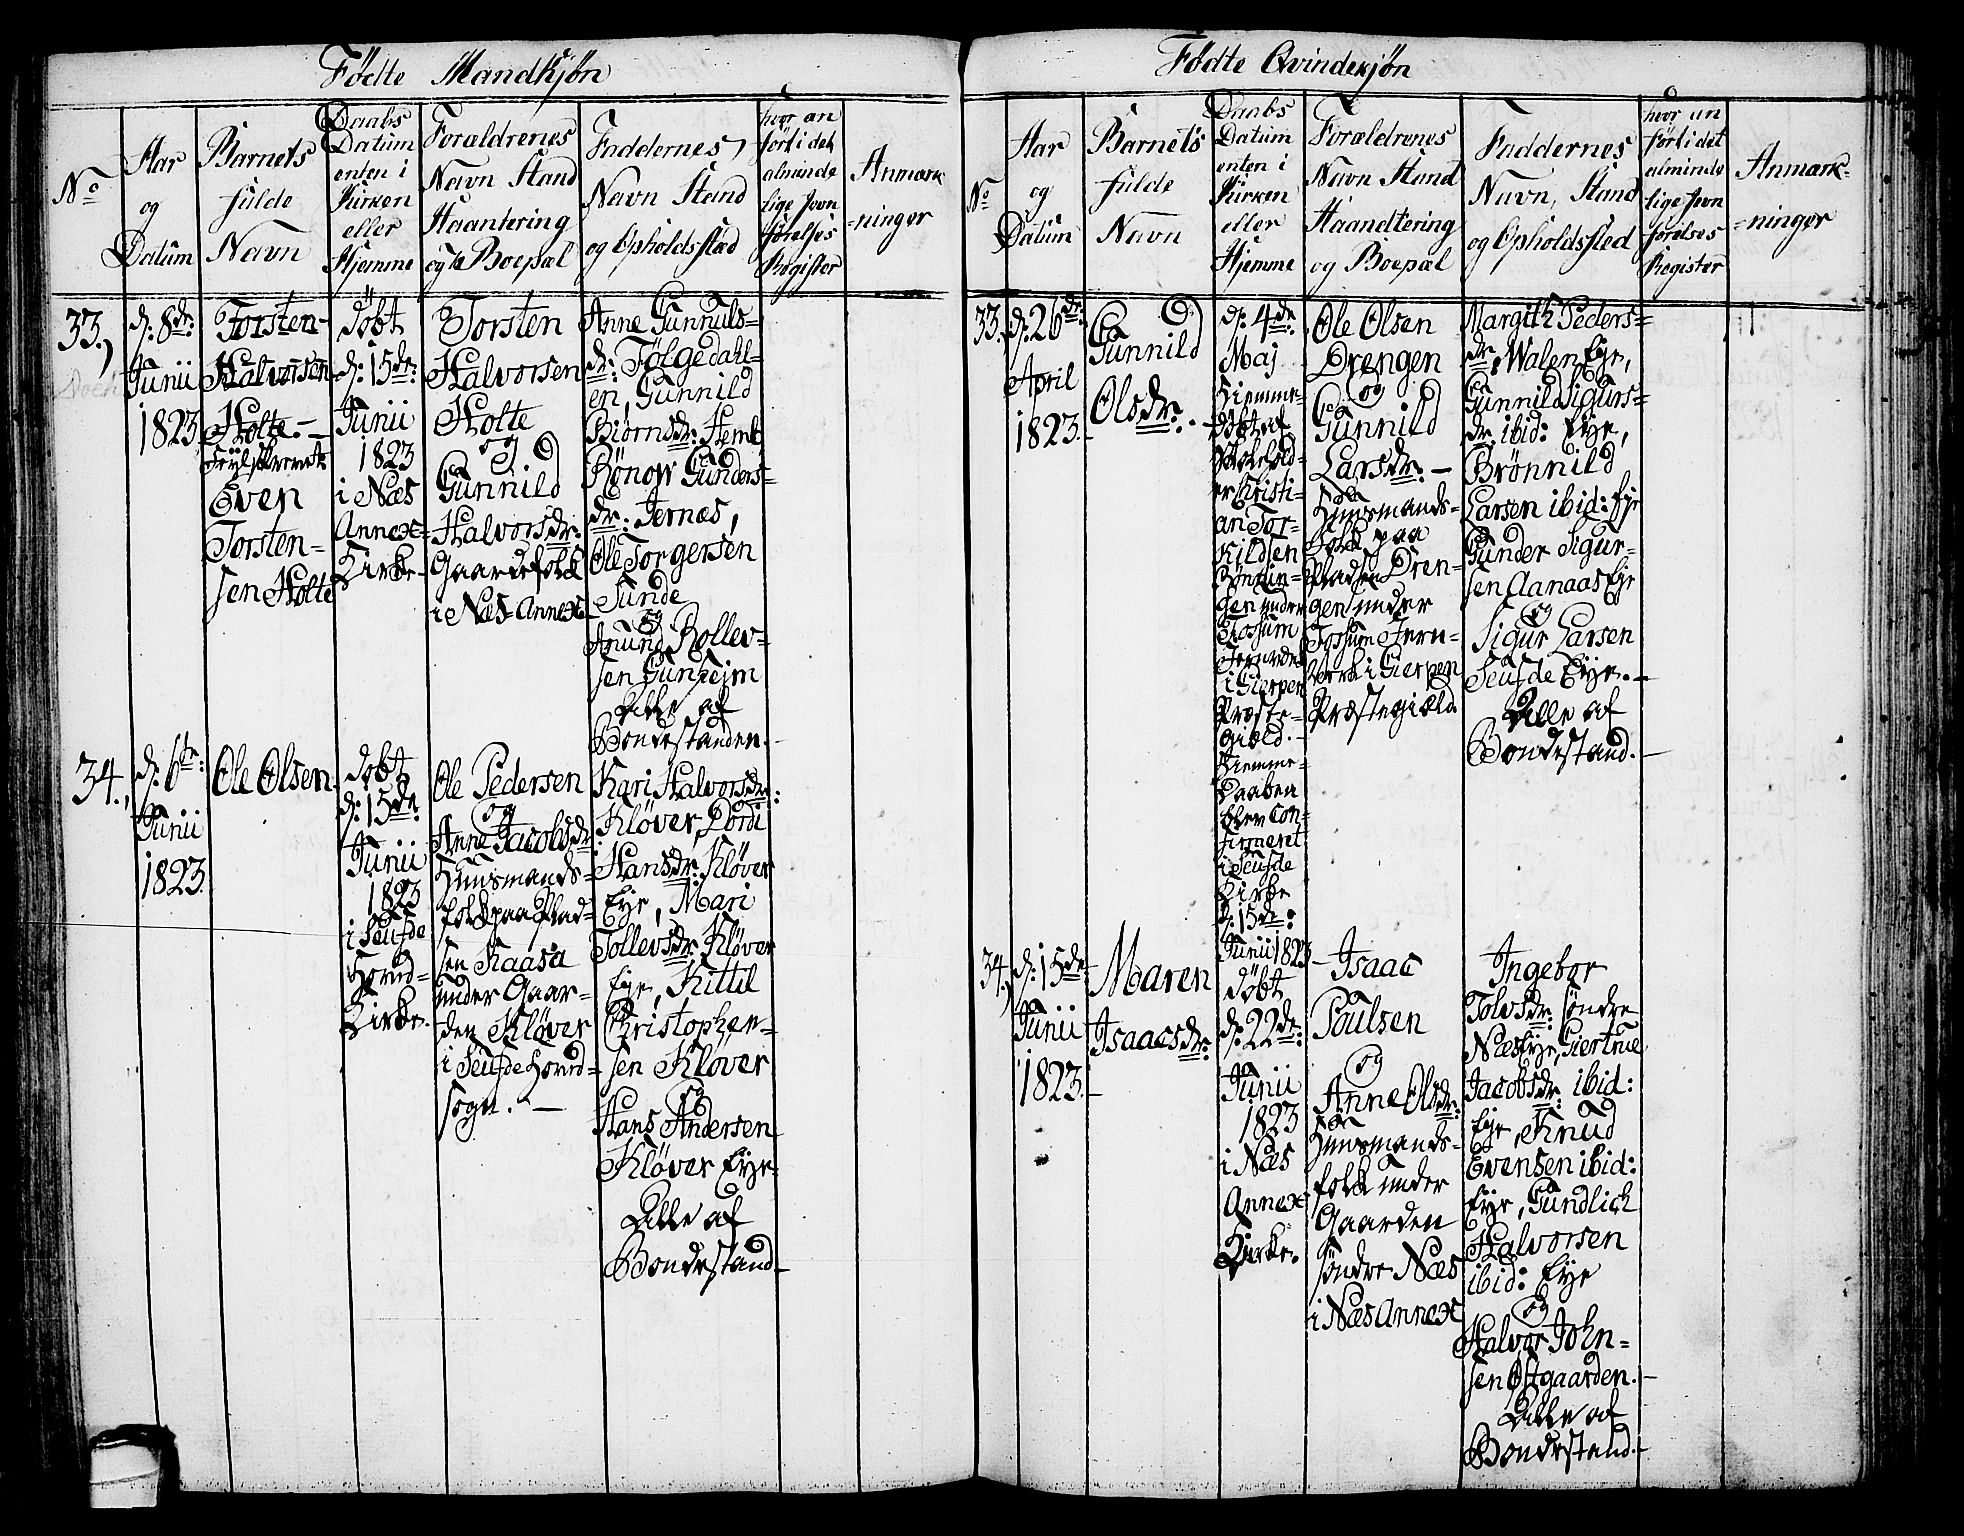 Fødte Mandkjøn
No
Aar
og
Datum
Barnets
fulde
Navn
Daabs
Datum
enten i
Kirken
eller
Hjemme
Forældrenes
Navn Stand
Haantering
og Boepæl
Faddernes
Navn Stand
og Opholdsstad
hvor an
ført i det
alminde
lige Jevn
førelses
Register
Anmærk
=ninger
33.)
d: 8de:
Junii
1823.
Torsten-
Halvorsen
Holte.-
Even
Torsten-
sen Holte
døbt
d: 15de:
Junii
1823
i Næs
Annex=
Kirke-
Torsten
Halvorsen
Holte
og
Gunnild
Halvorsdr:
Gaardefolk
i Næs Annex
Anne Gunnuls=
dr: Følgedahl=
en, Gunnild
Biørnsdr: Hemb
Rønow Gunders=
dr: Jernæs,
Ole Torgersen
Sunde
og
Anund Rollev-
sen Gunheim
Alle af
Bondestanden.-
34.,
d: 6te:
Junii
1823.
Ole Olsen.
døbt
d: 15de
Junii
1823
i Seufde
Hoved=
Kirke.
Ole Pedersen
og
Anne Jacobsdr:
Huusmands=
folk paa Plad=
sen Kaasa
under Gaar-
den Kløver
i Seufde Hoved=
sogn. -
Kari Halvorsdr:
Kløver, Dordi
Hansdr: Kløver
Eye, Mari
Tollevsdr: Kløver
Eye, Kittil
Christophen-
sen Kløver
og
Hans Andersen
Kløver Eye-
Alle af
Bondestand.-
Fødte Qvindekjøn
No
Aar
og
Datum
Barnets
fulde
Navn
Daabs
Datum
enten i
Kirken
eller
Hjemme
Forældrenes
Navn Stand
Haandtering
og Boepæl
Faddernes
Navn, Stand
og Opholdsted
hvor an
ført i det
alminde
lige Jevn
førelses
Register
Anmærk=
=ninger
33.
d: 26de:
April
1823.-
Gunnild
Olsdr:.
d: 4de
Maj
Hiemme-
døbt af
Skolehold-
er Kristi-
an Tor-
kildsen
under
Fossum
i Gierpen
Præste-
giæld.-
Hiemme-
Daaben
blev con-
firmeret
i Seufde
Kirke
d: 15de:
Junii 1823
Ole Olsen
Drengen
og
Gunnild
Larsdr: -
Huusmands-
folk paa
Pladsen Dren-
gen under
Fossum Jern-
Verk i Gierpen
Præstegiæld
Margith Peders=
dr: Walen Eye,
Gunnild Sigurs=
dr: ibid: Eye,
Brønnild
Larsen ibid: Eye
Gunder Sigur-
sen Aanaas Eye
og
Sigur Larsen
Seufde Eye.-
Alle af
Bondestand.-
34.,
d: 15de
Junii
1823.-
Maren
Isaacsdr:
døbt
d: 22de:
Junii
1823
i Næs
Annex
Kirke.
Isaac
Poulsen
og
Anne Olsdr:
Huusmands-
folk under
Gaarden
søndre Næs
i Næs Annex
Ingebor
Tolvsdr: søndre
Næs Eye, Giertrue
Jacobsdr: ibid:
Eye, Knud
Evensen ibid:
Eye, Gundlich
Halvorsen
ibid: Eye
og
Halvor John-
sen Østgaarden.-
Alle af
Bondestand.-